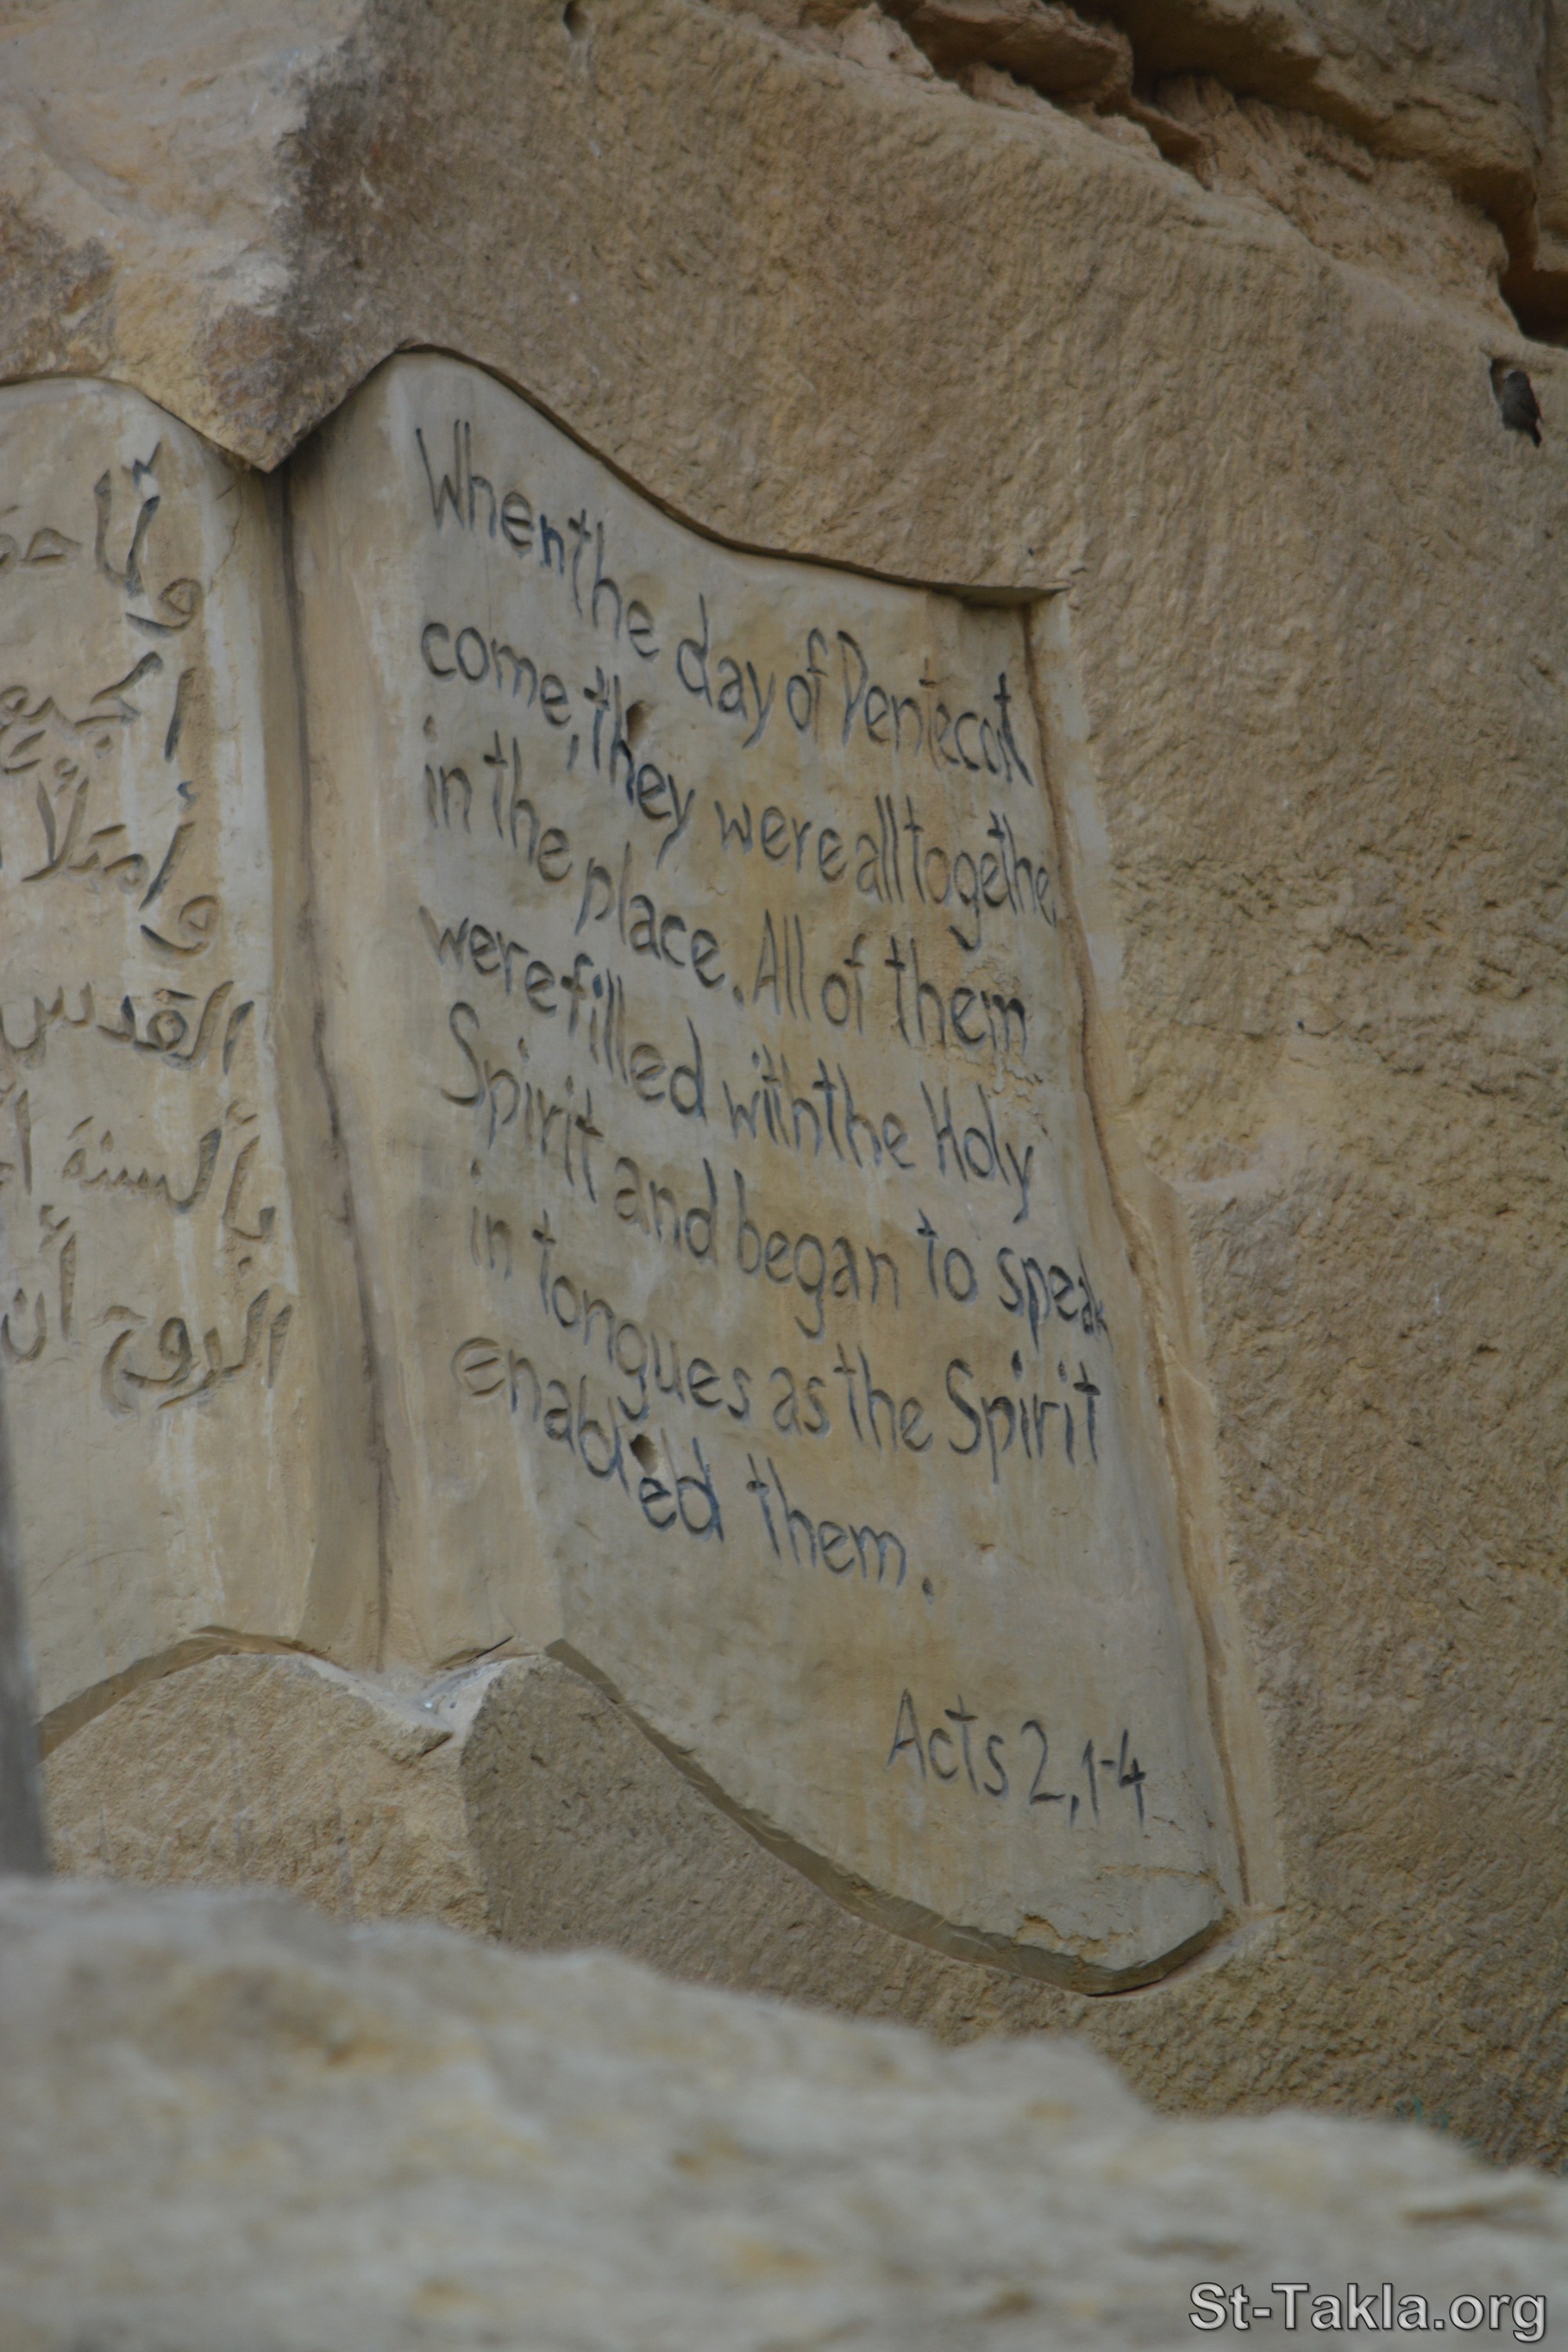 ولما
الجميع
وامتلأ
القدس
بألسنة
الروح أن
When the day of Pentecost
come, they were all together
in the place. All of them
were filled with the Holy
Spirit and began to speak
in tongues as the Spirit
enabled them.
Acts 2,1-4
St-Takla.org